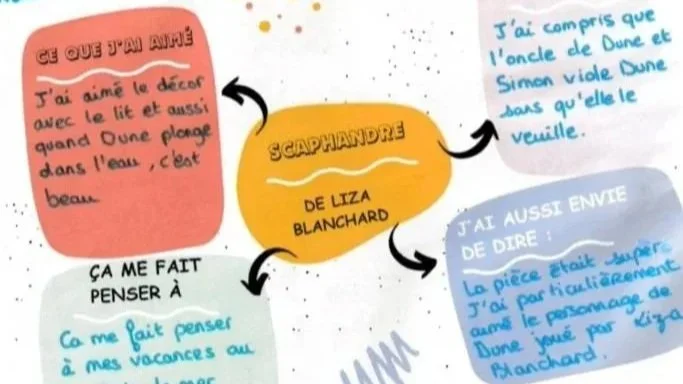 CE QUE J'AI AIMÉ
J'ai aimé le décor
avec le lit et aussi
quand Dune plonge
dans l'eau, c'est
beau
SCAPHANDRE
DE LIZA
BLANCHARD
J'ai compris que
l'oncle de Dune et
Simon viole Dune
sans qu'elle le
veuille.
ÇA ME FAIT
PENSER À
Ca me fait penser
à mes vacances au
de mer
J'AI AUSSI ENVIE
DE DIRE :
La pièce était super
J'ai particulièrement
aimé le personnage de
Dune joué par Liza
Blanchard.